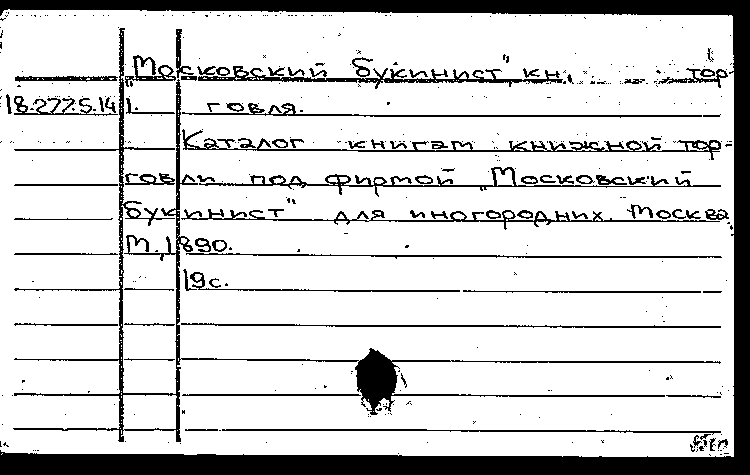 "Московский букинист", кн. тор-
18.277.5.14 1. говля.
Каталог книгам книжной тор-
говли под фирмой „Московский
букинист" для иногородних. Москва.
М., 1890.
19с.